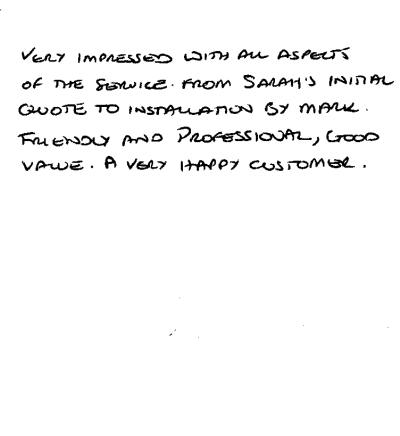 VERY IMPRESSED WITH ALL ASPECTS
OF THE SERVICE. FROM SARAH'S INITIAL
QUOTE TO INSTALLATION BY MARK.
FRIENDLY AND PROFESSIONAL, GOOD
VALUE. A VERY HAPPY CUSTOMER.